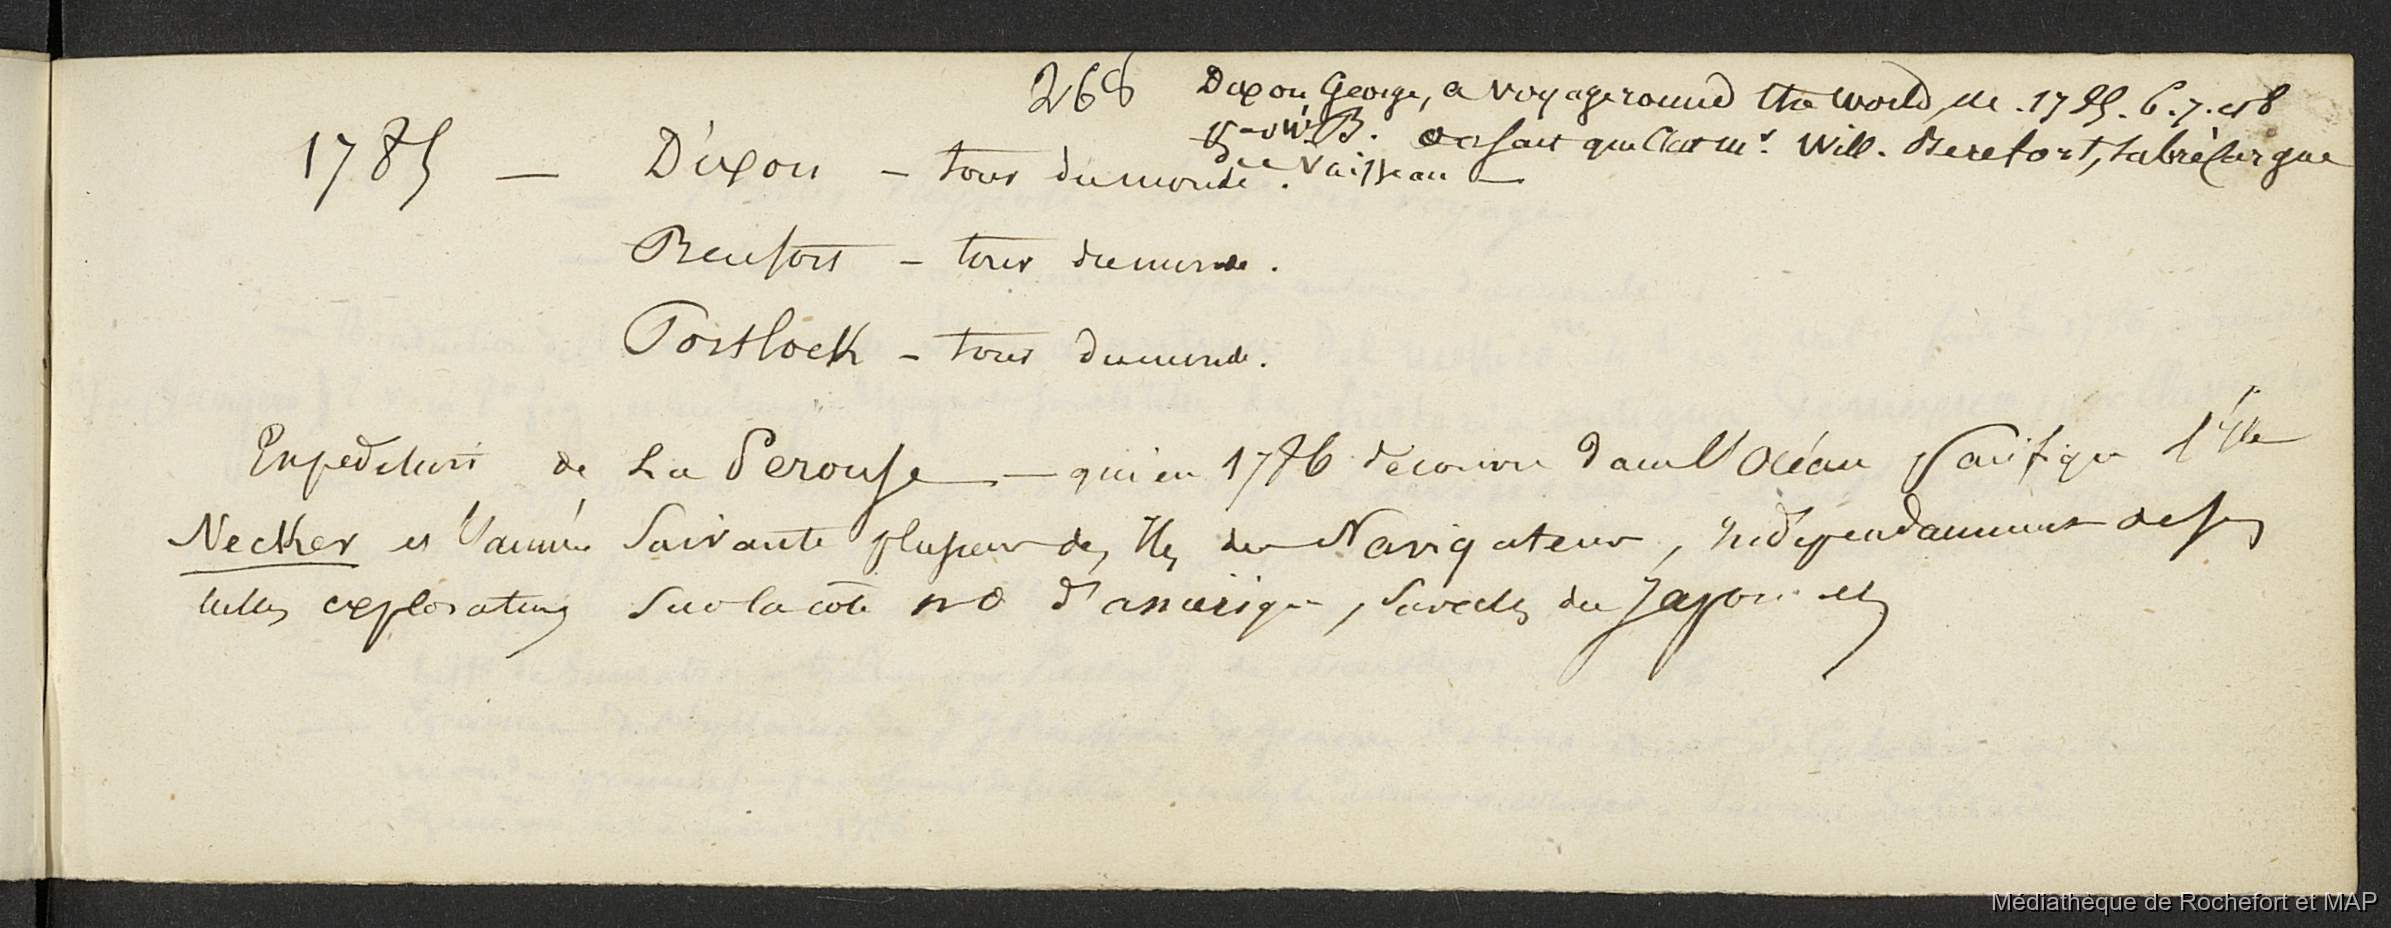 268
Dixon George, a voyage round the world en 1785. 6. 7. et 8
par W. B. on sait que c'est Mr. Will. Beresfort, subrécargue
du vaisseau —
1785 — Dixon — tour du monde.
Beresfort — tour du monde.
Portlock — tour du monde.
Expédition de La Perouse — qui en 1786 découvre dans l'Océan Pacifique l'Ile
Necker et l'année suivante plusieurs des Iles des Navigateurs, indépendamment de ses
belles explorations sur la côte NO d'amérique, du Japon etc
Médiathèque de Rochefort et MAP